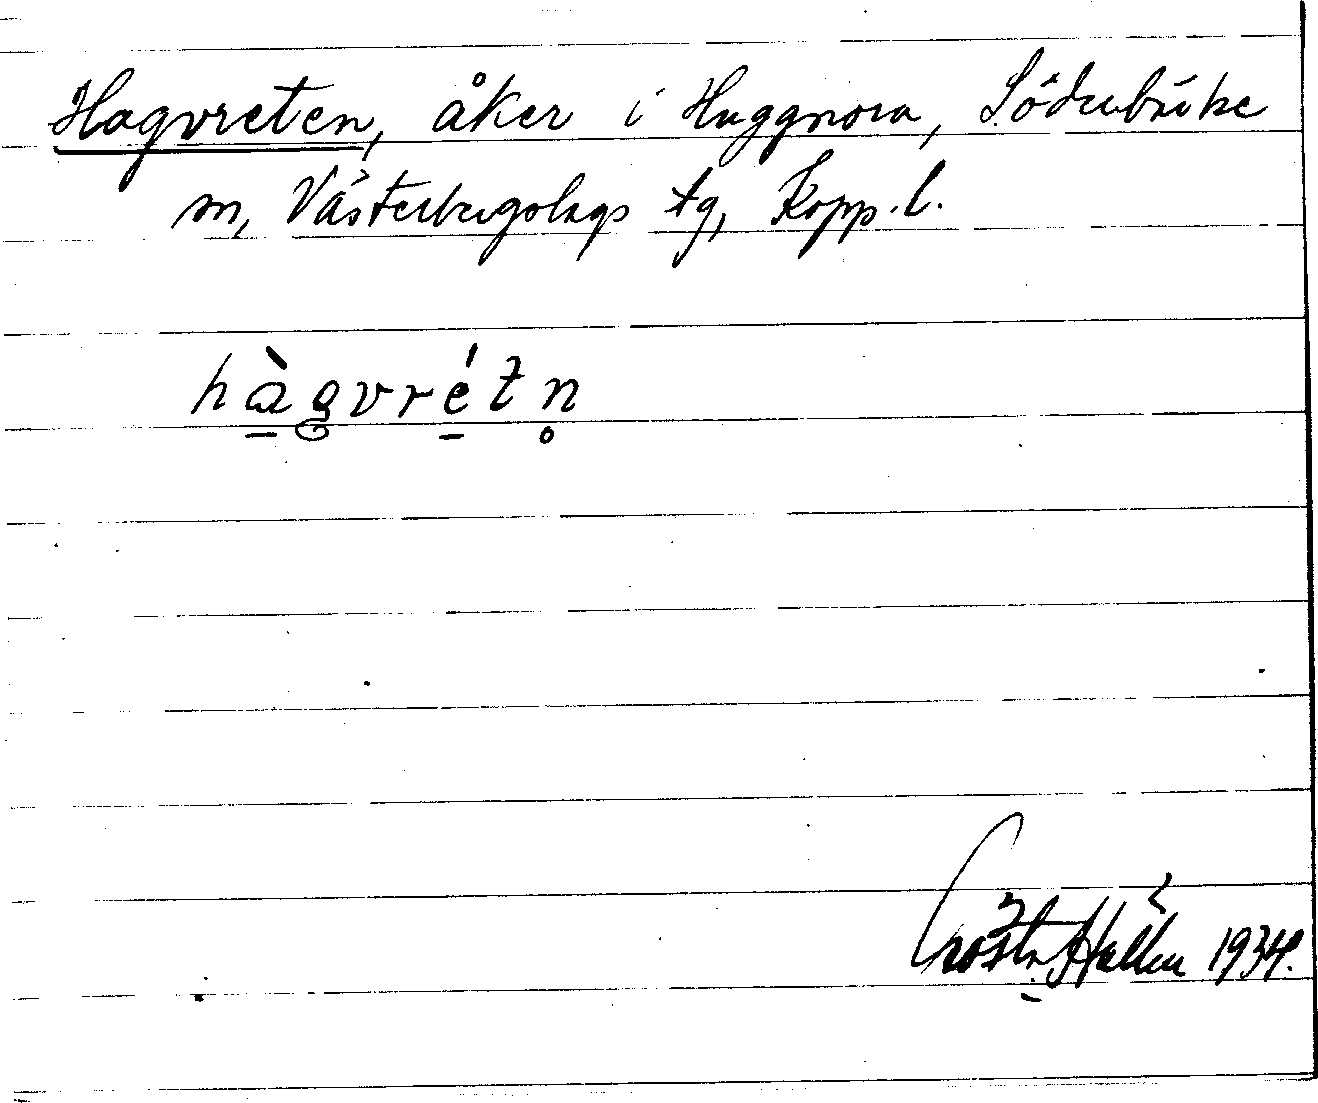 Hagvreten, åker i Huggnora, Söderbärke
sn, Västerbergslags tg, Kopp. l.
hàgvrétn̥
Gösta Hallén 1934.